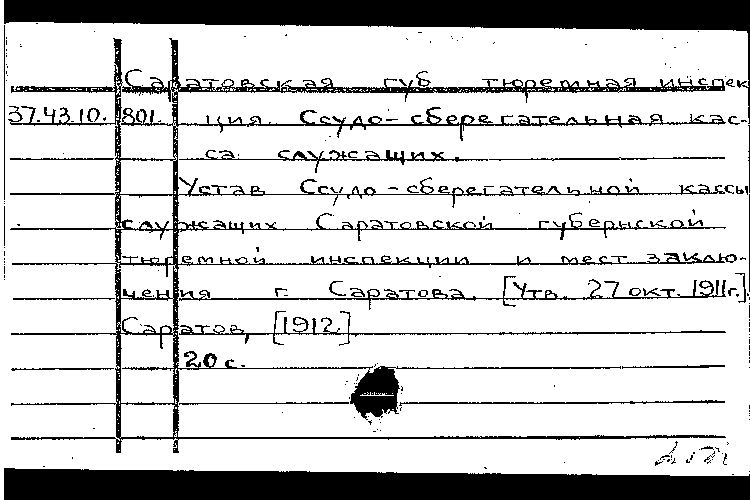 Саратовская губ тюремная инспек
37.43.10. 801. ция. Ссудо-сберегательная кас-
са служащих.
Устав Ссудо-сберегательной кассы
служащих Саратовской губернской
тюремной инспекции и мест заклю-
чения г. Саратова. [Утв. 27 окт. 1911г.].
Саратов, [1912].
20 с.